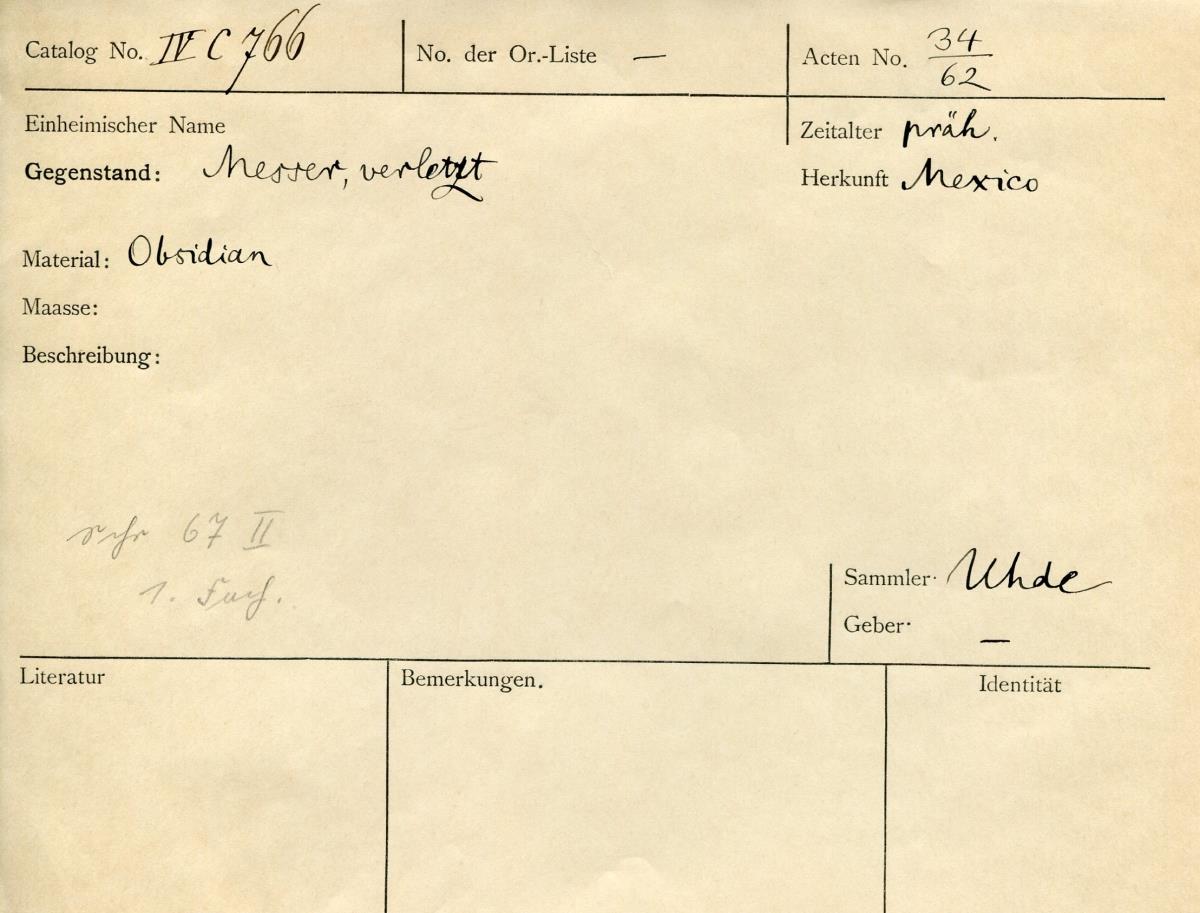 Catalog No. IV C 766 No. der Or.-Liste — Acten No. 34/62
Einheimischer Name
Zeitalter präh.
Gegenstand: Messer, verletzt
Herkunft Mexico
Material: Obsidian
Maasse:
Beschreibung:
67 II
1. Fach.
Sammler Uhde
Geber —
Literatur Bemerkungen. Identität